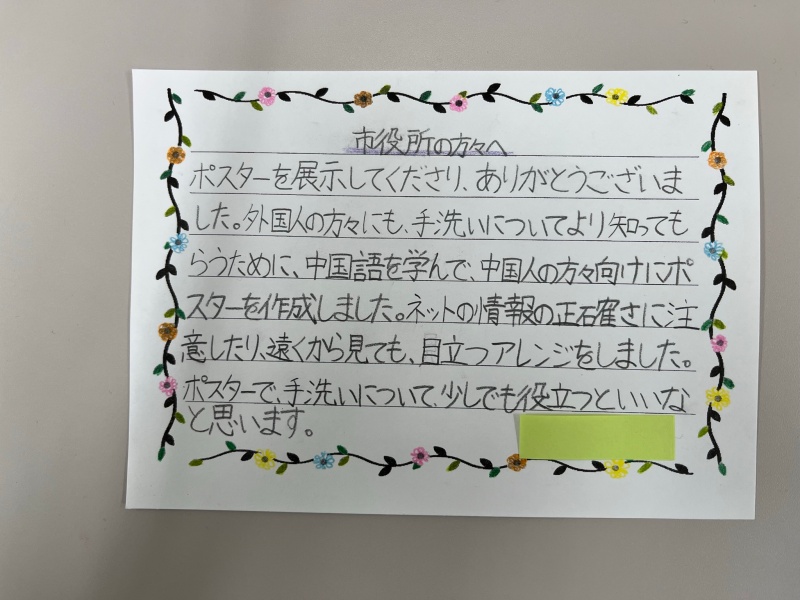 市役所の方々へ
ポスターを展示してくださり、ありがとうございま
した。外国人の方々にも、手洗いについてより知っても
らうために、中国語を学んで、中国人の方々向けにポ
スターを作成しました。ネットの情報の正確さに注
意したり、遠くから見ても、目立つアレンジをしました。
ポスターで、手洗いについて、少しでも役立つといいな
と思います。